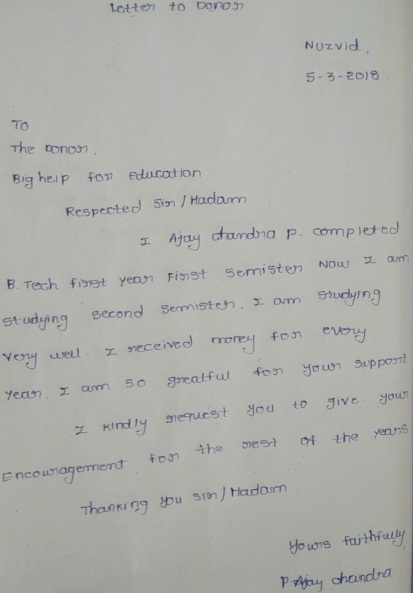 Letter to Donor
Nuzvid,
5-3-2018
To
The Donor.
Big help for Education
Respected Sir/Madam
I Ajay chandra P. completed
B.Tech first year First semister Now I am
studying second semister. I am studying
very well. I received money for every
year. I am so greatful for your support
I kindly request you to give your
Encouragement for the rest of the years
Thanking you sir/Madam
Yours faithfully
P Ajay chandra